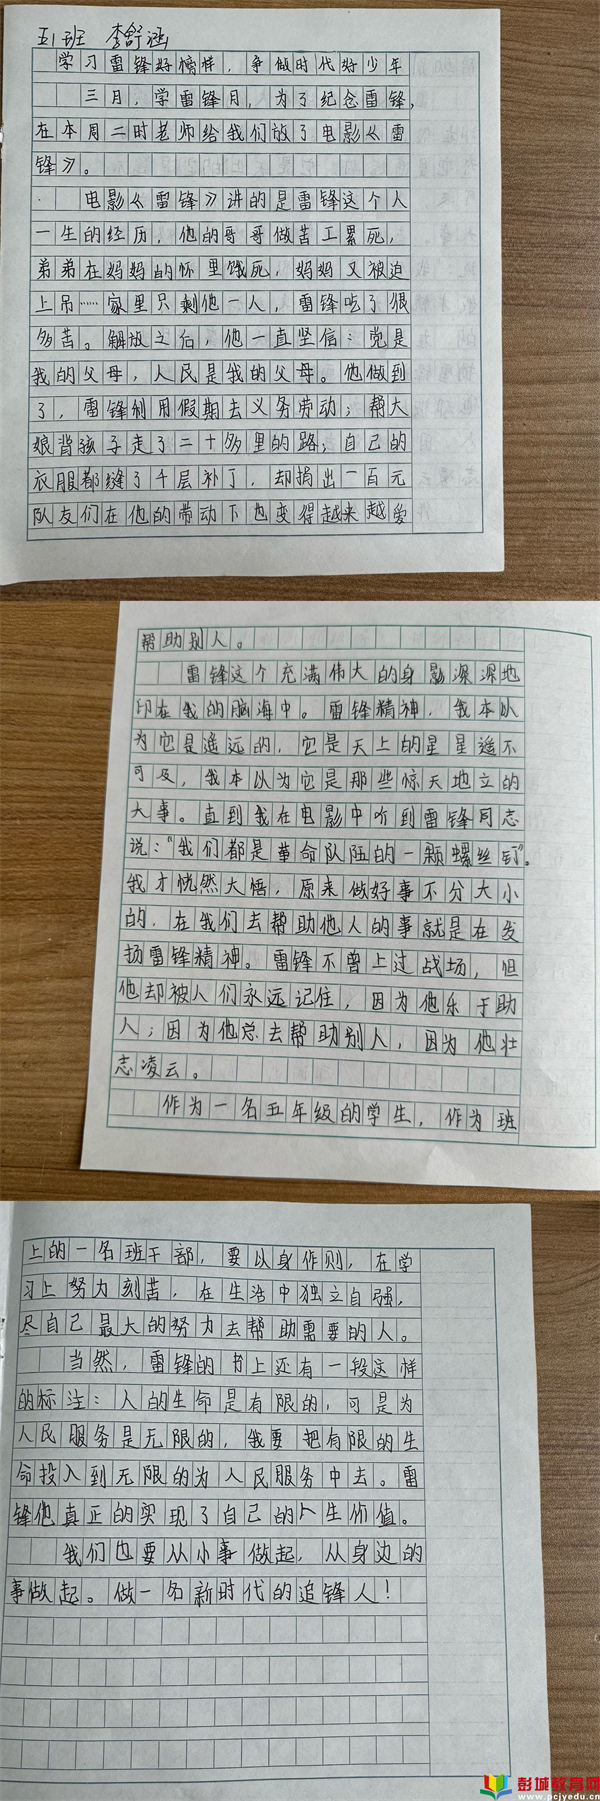 五1班 李舒涵
学习雷锋好榜样，争做时代好少年
三月，学雷锋月，为了纪念雷锋，
在本周二时老师给我们放了电影《雷
锋》。
电影《雷锋》讲的是雷锋这个人
一生的经历，他的哥哥做苦工累死，
弟弟在妈妈的怀里饿死，妈妈又被迫
上吊……家里只剩他一人，雷锋吃了很
多苦。解放之后，他一直坚信：党是
我的父母，人民是我的父母。他做到
了，雷锋利用假期去义务劳动；帮大
娘背孩子走了二十多里的路；自己的
衣服都缝了千层补丁，却捐出一百元
队友们在他的带动下也变得越来越爱
帮助别人。
雷锋这个充满伟大的身影深深地
印在我的脑海中。雷锋精神，我本以
为它是遥远的，它是天上的星星遥不
可及，我本以为它是那些惊天地立的
大事。直到我在电影中听到雷锋同志
说："我们都是革命队伍的一颗螺丝钉"。
我才恍然大悟，原来做好事不分大小
的，在我们去帮助他人的事就是在发
扬雷锋精神。雷锋不曾上过战场，但
他却被人们永远记住，因为他乐于助
人；因为他总去帮助别人，因为他壮
志凌云。
作为一名五年级的学生，作为班
上的一名班干部，要以身作则，在学
习上努力刻苦，在生活中独立自强，
尽自己最大的努力去帮助需要的人。
当然，雷锋的书上还有一段这样
的标注：人的生命是有限的，可是为
人民服务是无限的，我要把有限的生
命投入到无限的为人民服务中去。雷
锋他真正的实现了自己的人生价值。
我们也要从小事做起，从身边的
事做起。做一名新时代的追锋人！
彭城教育网
www.pcjyedu.cn